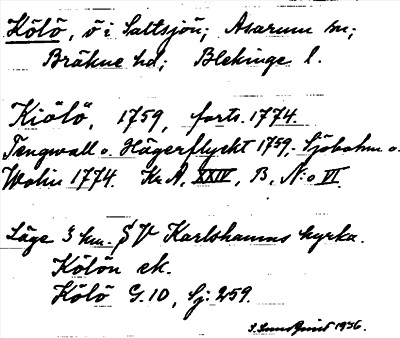 Kölö, ö i Saltsjön; Asarum sn;
Bräkne hd; Blekinge l.
Kiölö, 1759, forts. 1774.
Tengwall o. Hägerflycht 1759, Sjöbohm o.
Wohn 1774. Kr. A. XXIV, B, N:o VI.
Läge 3 km. SV Karlshamns kyrka.
Kölön ek.
Kölö G. 10, Sj: 259.
S. Sundquist 1936.